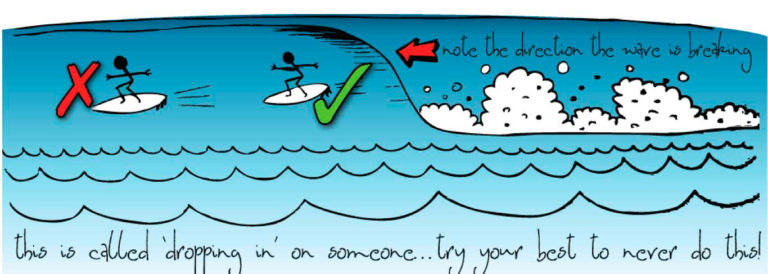 note the direction the wave is breaking
this is called 'dropping in' on someone...try your best to never do this!